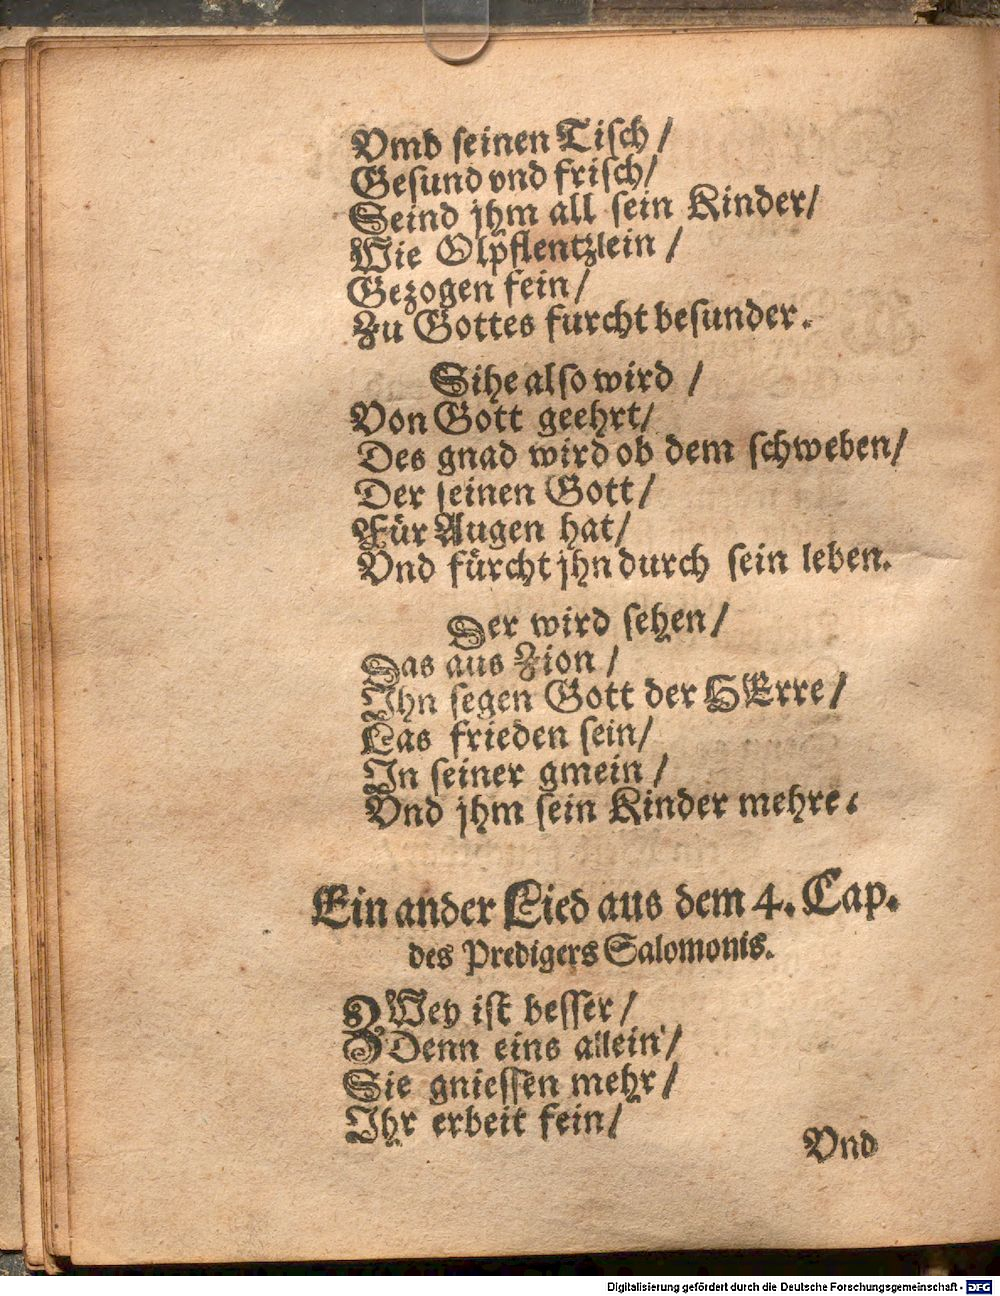 Vmb seinen Tisch /
Gesund vnd frisch /
Seind jhm all sein Kinder /
Wie Olpflentzlein /
Gezogen fein /
Zu Gottes furcht besunder.
Sihe also wird /
Von Gott geehrt /
Des gnad wird ob dem schweben /
Der seinen Gott /
Für Augen hat /
Vnd fürcht jhn durch sein leben.
Der wird sehen /
Das aus Zion /
Ihn segen Gott der HErre /
Las frieden sein /
In seiner gmein /
Vnd jhm sein Kinder mehre.
Ein ander Lied aus dem 4. Cap.
des Predigers Salomonis.
ZWey ist besser /
Denn eins allein /
Sie gniessen mehr /
Ihr erbeit fein /
Vnd
Digitalisierung gefördert durch die Deutsche Forschungsgemeinschaft - DFG